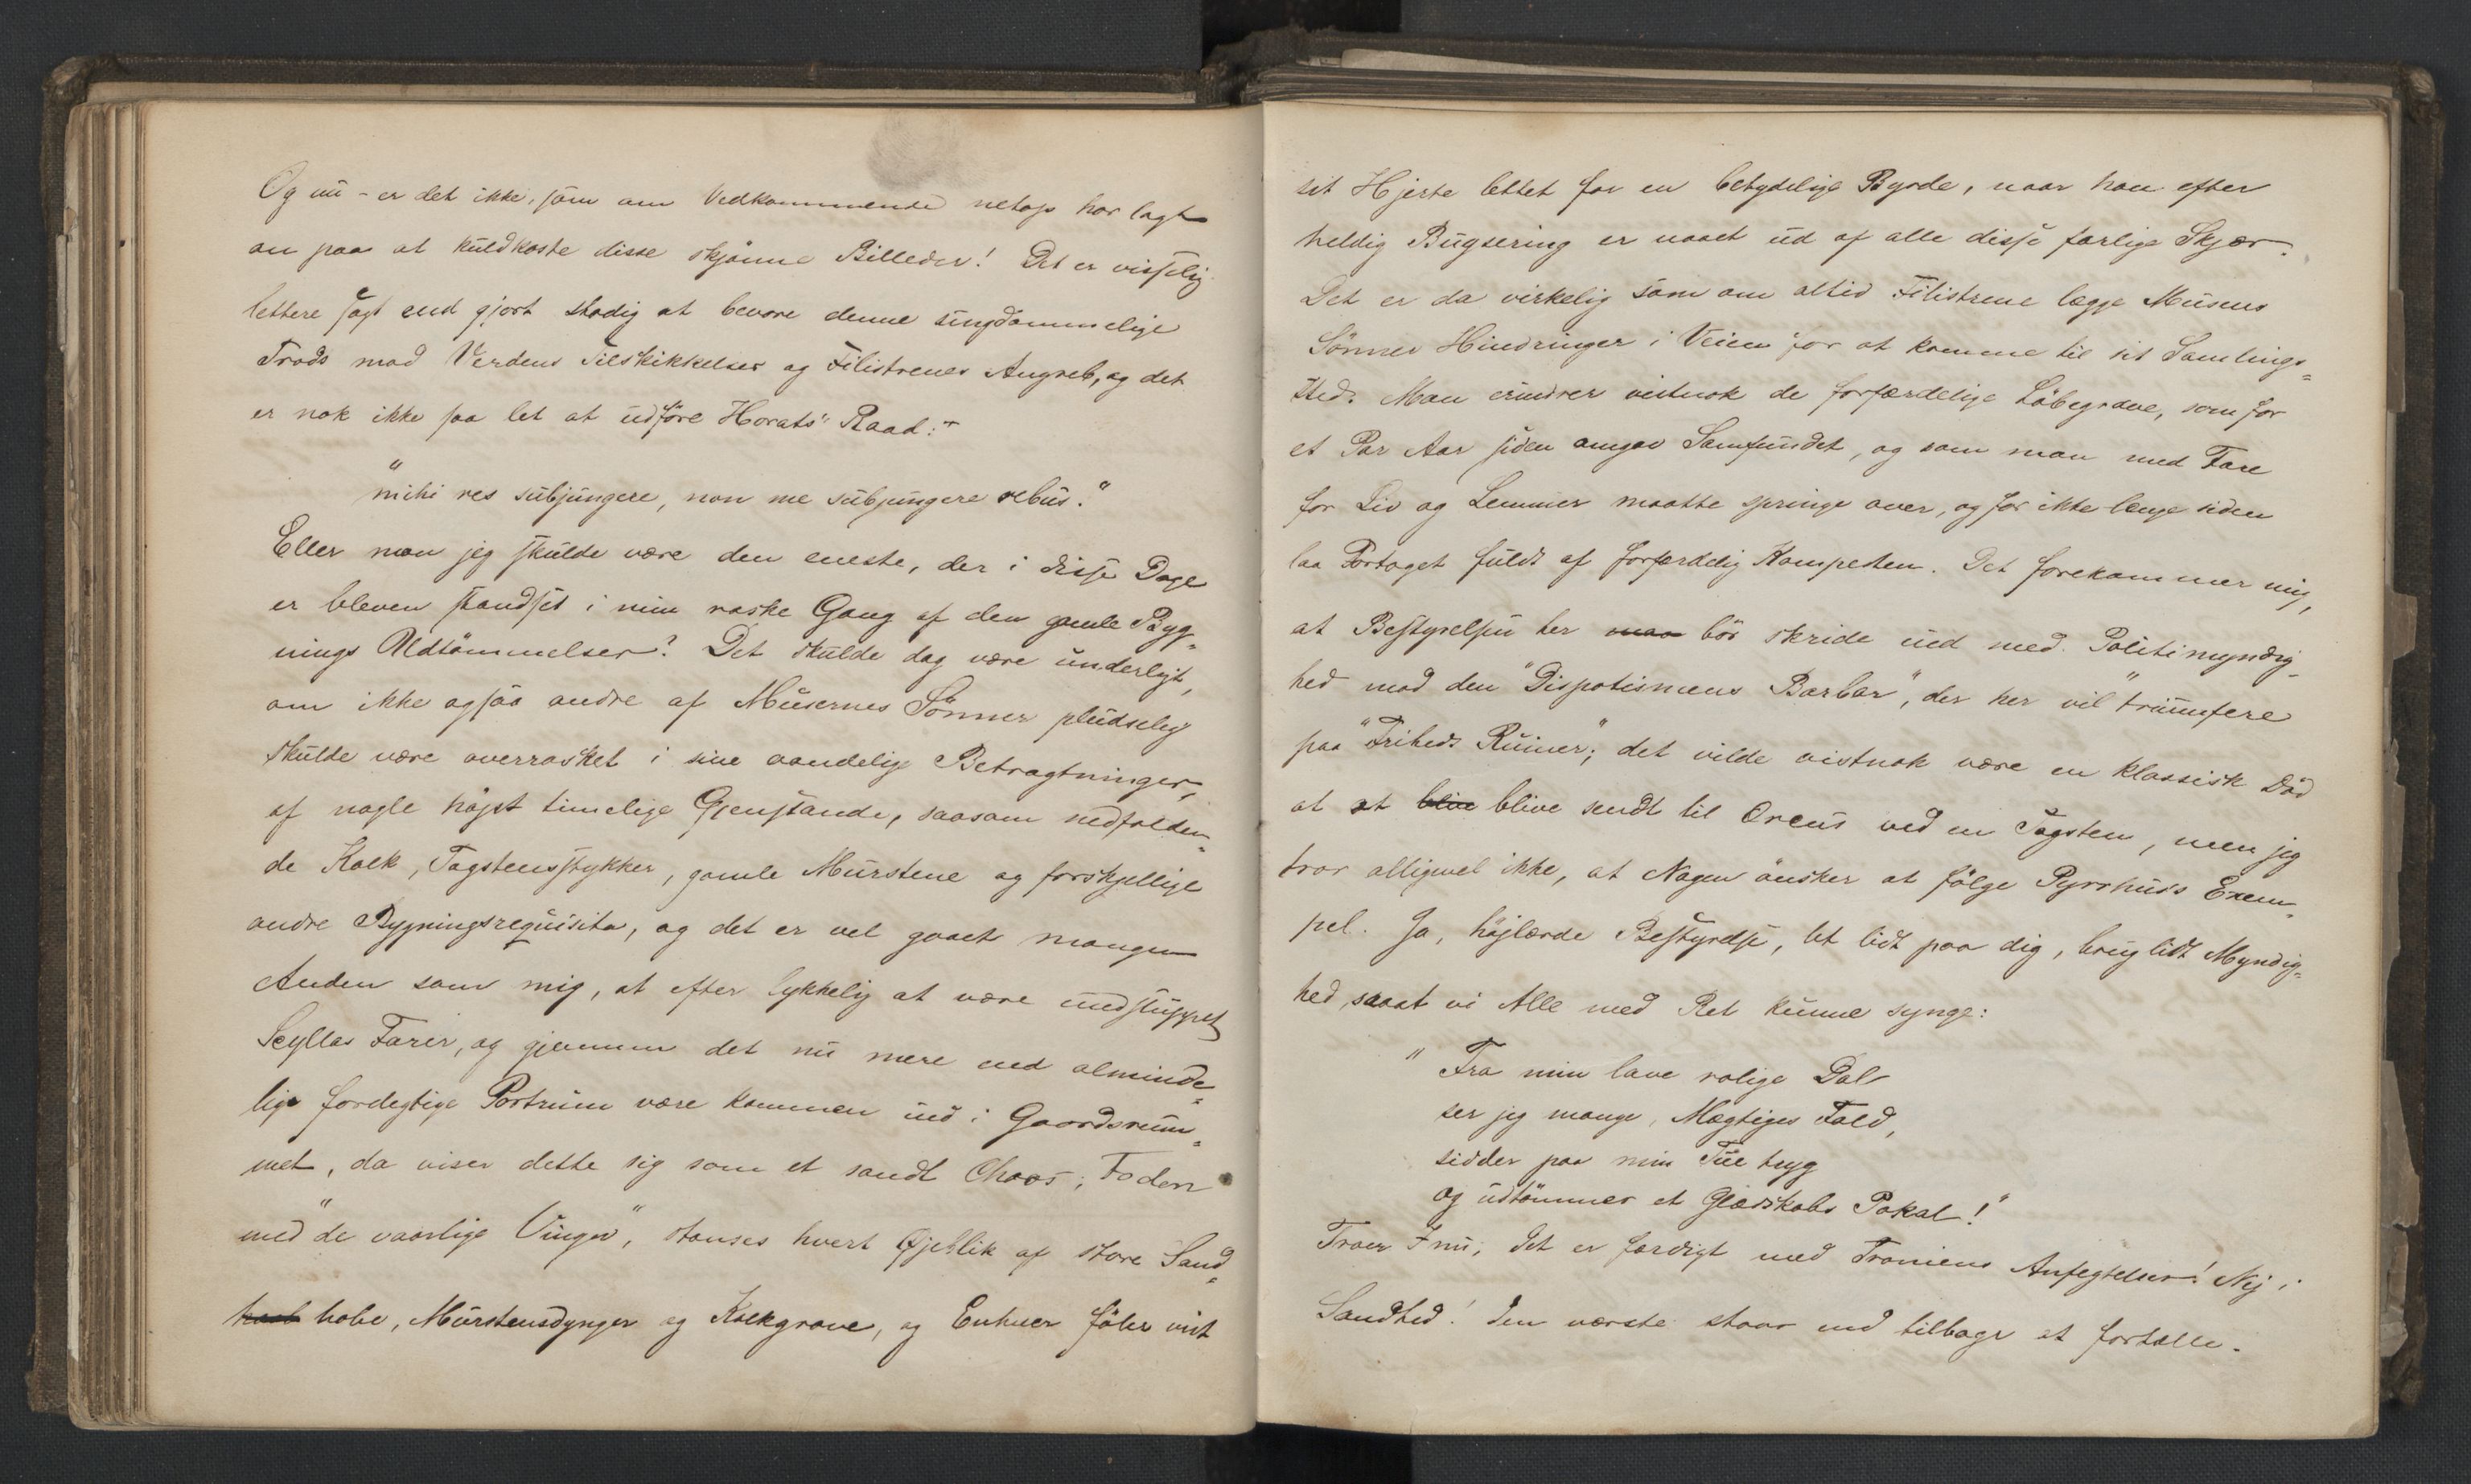 Og nu - er det ikke, som om Vedkommende netop har lagt
an paa at kuldkaste disse skjønne Billeder! Det er visselig
lettere sagt end gjort stadig at bevare denne ungdommelige
Trods mod Verdens Tilskikkelser og Filistrenes Angreb, og det
er nok ikke saa let at udføre Horats' Raad:-
"mihi res subjungere, non me subjungere rebus."
Eller mon jeg skulde være den eneste, der i disse Dage
er bleven standset i min raske Gang af den gamle Byg-
nings Udtømmelser? Det skulde dog være underligt,
om ikke ogsaa andre af Musernes Sønner pludselig
skulde være overrasket i sine aandelige Betragtninger,
af nogle højst timelige Gjenstande, saasom nedfalden-
de Kalk, Tagstensstykker, gamle Murstene og forskjellige
andre Bygningsrequisita, og det er vel gaaet mangen
Anden som mig, at efter lykkelig at være undsluppet
Scyllas Farer, og gjennem det nu mere end alminde-
lige fordægtige Portrum være kommen ind i Gaardsrum-
met, da viser dette sig som et sandt Chaos; Foden
med "de vaarlige Vinger", stanses hvert Øjeblik af store Sand-
hobe, Murstensdynger og Kalkgrave, og Enhver føler vist
sit Hjerte lettet for en betydelige Byrde, naar han efter
heldig Bugsering er naaet ud af alle disse farlige Skjær.
Det er da virkelig som om altid Filistrene lægge Musens
Sønner Hindringer i Veien for at komme til sit Samlings-
sted. Man erindrer vistnok de forfærdelige Løbegrave, som for
et Par Aar siden omgav Samfundet, og som man med Fare
for Liv og Lemmer maatte springe over, og for ikke længe siden
laa Fortoget fuldt af forfærdelig Kampesten. Det forekommer mig,
at Bestyrelsen her maa bør skride ind med Politimyndig-
hed mod den "Dispotismens Barbar", der her vil "triumfere
paa "Friheds Ruiner"; det vilde vistnok være en klassisk Død
at at blive blive sendt til Orcus ved en Tagsten, men jeg
tror alligevel ikke, at Nogen ønsker at følge Pyrrhus's Exem-
pel. Ja, højlærde Bestyrelse, let lidt paa dig, brug lidt Myndig-
hed, saaat vi Alle med Ret kunne synge:
" Fra min lave rolige Dal
ser jeg mange Mægtiges Fald,
sidder paa min Tue tryg
og udtømmer et Glædskabs Pokal!"
Troer I nu, det er færdigt med Troniens Anfegtelser! Nej i
Sandhed! den værste staar end tilbage at fortælle.